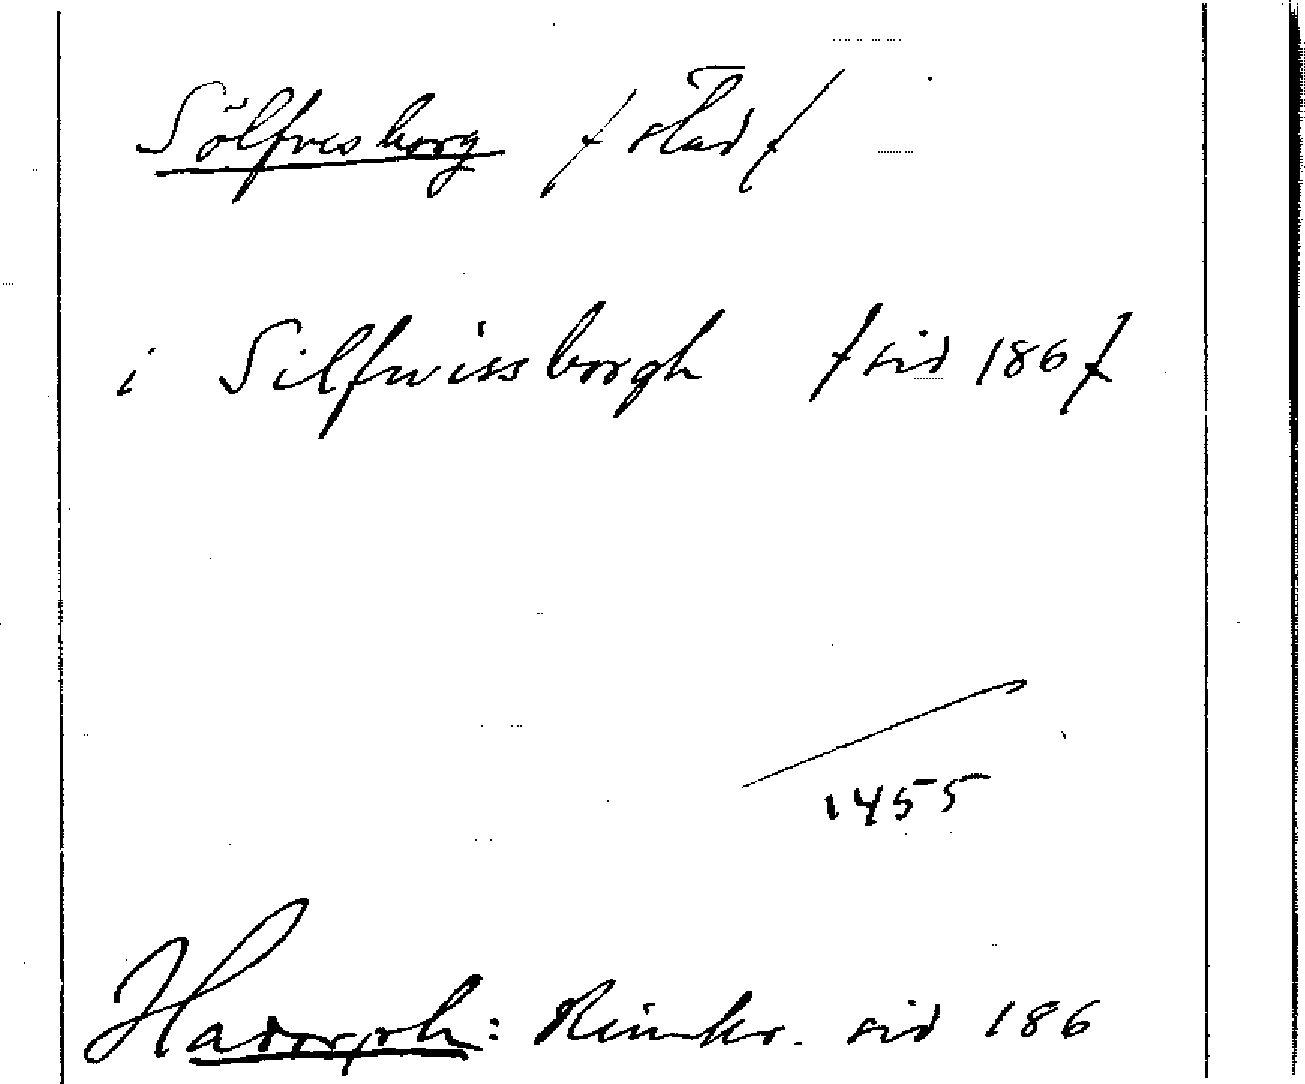 Sölfvesborg / stad /
i Silfwissborgh / sid 186 /
1455
Hadorph: Rimkr. sid 186